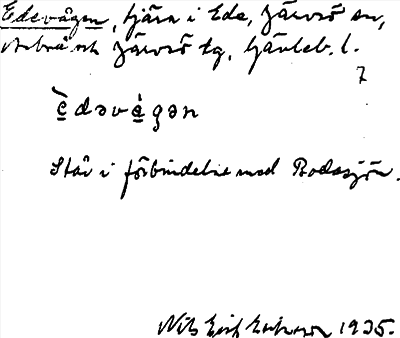 Edevågen, tjärn i Ede, Järvsö sn,
Arbrå och Järvsö tg, Gävleb. l.
7
èdəvágən
Står i förbindelse med Bodasjön.
Nils Erik Eriksson 1935.